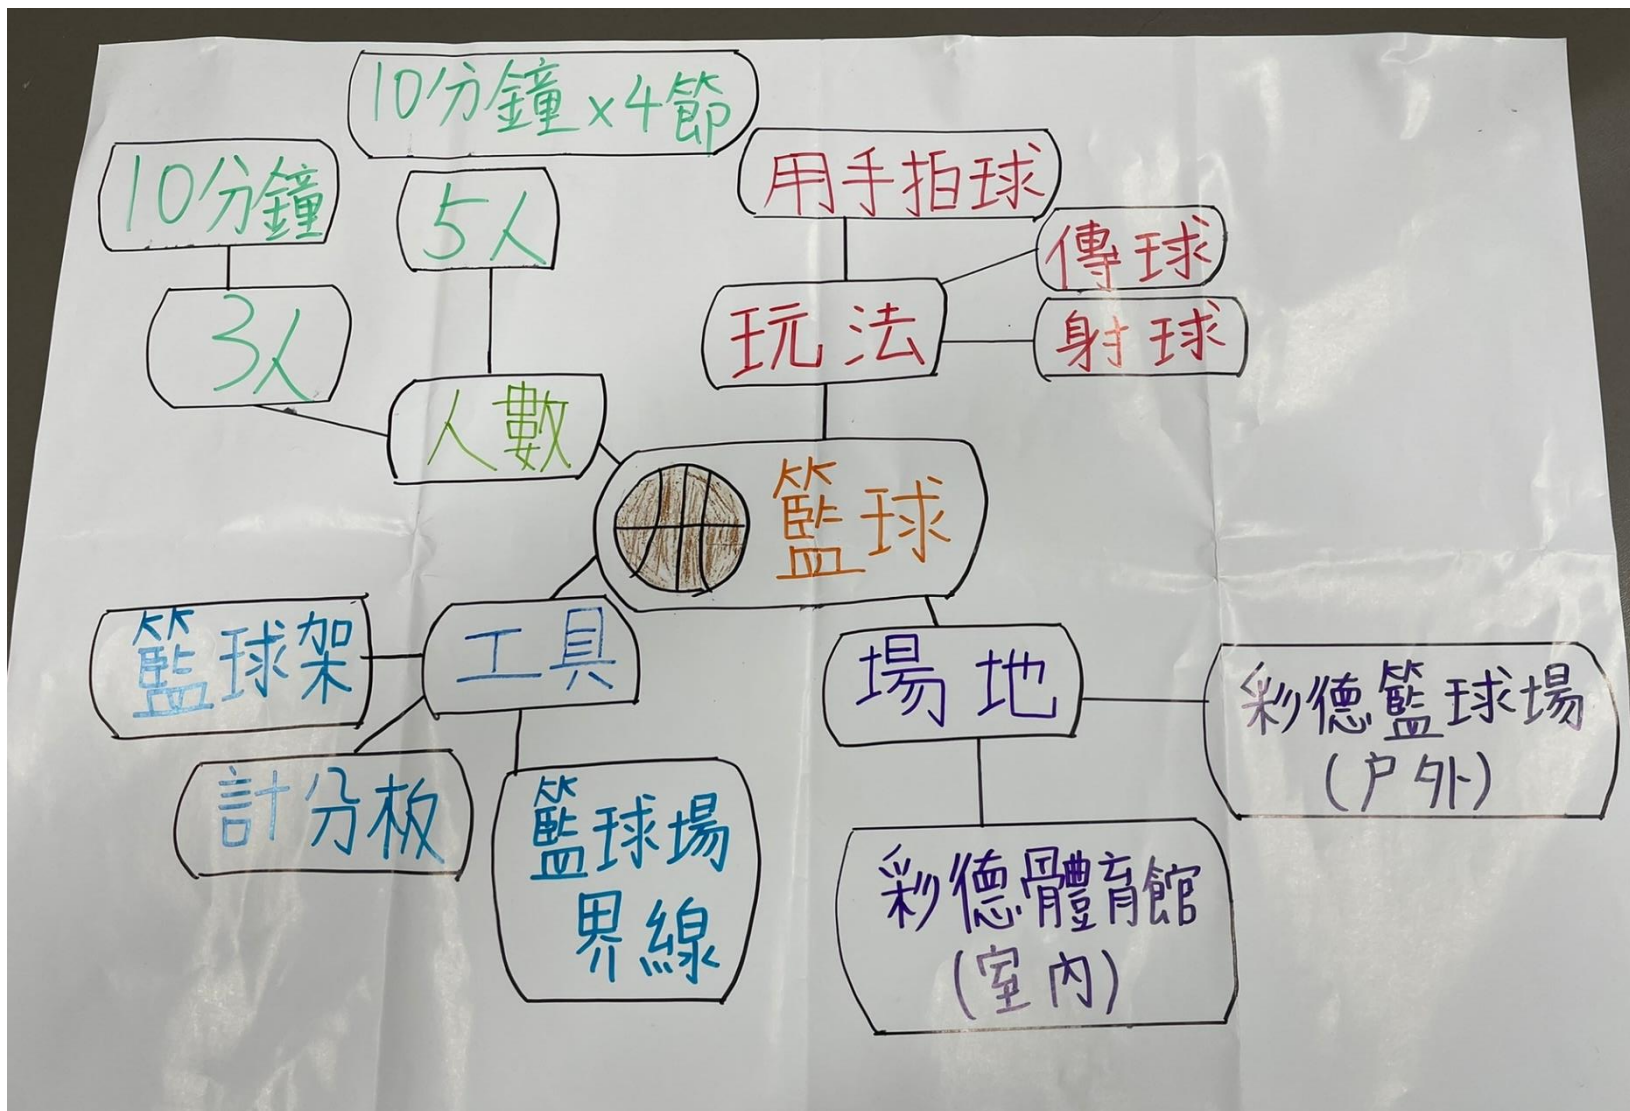 10分鐘×4節
10分鐘
5人
3人
人數
用手拍球
傳球
玩法
射球
籃球
工具
籃球架
計分板
籃球場
界線
場地
彩德籃球場
(户外)
彩德體育館
(室內)